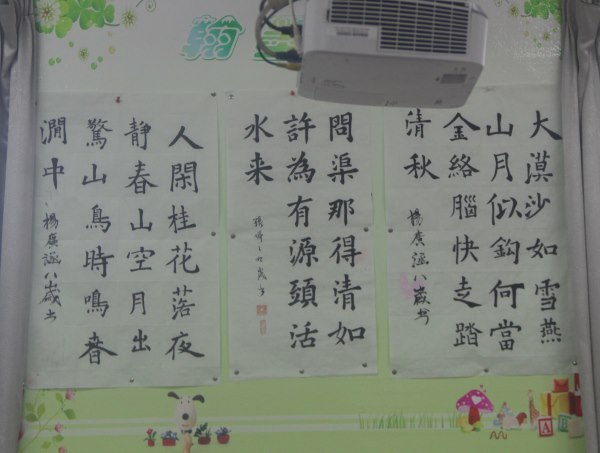 翰
大漠沙如雪燕
山月似鈎何當
金絡腦快走踏
清秋
楊廣涵八歲书
問渠那得清如
許為有源頭活
水来
人閑桂花落夜
静春山空月出
驚山鳥時鳴春
澗中
楊廣涵八歲书
A B